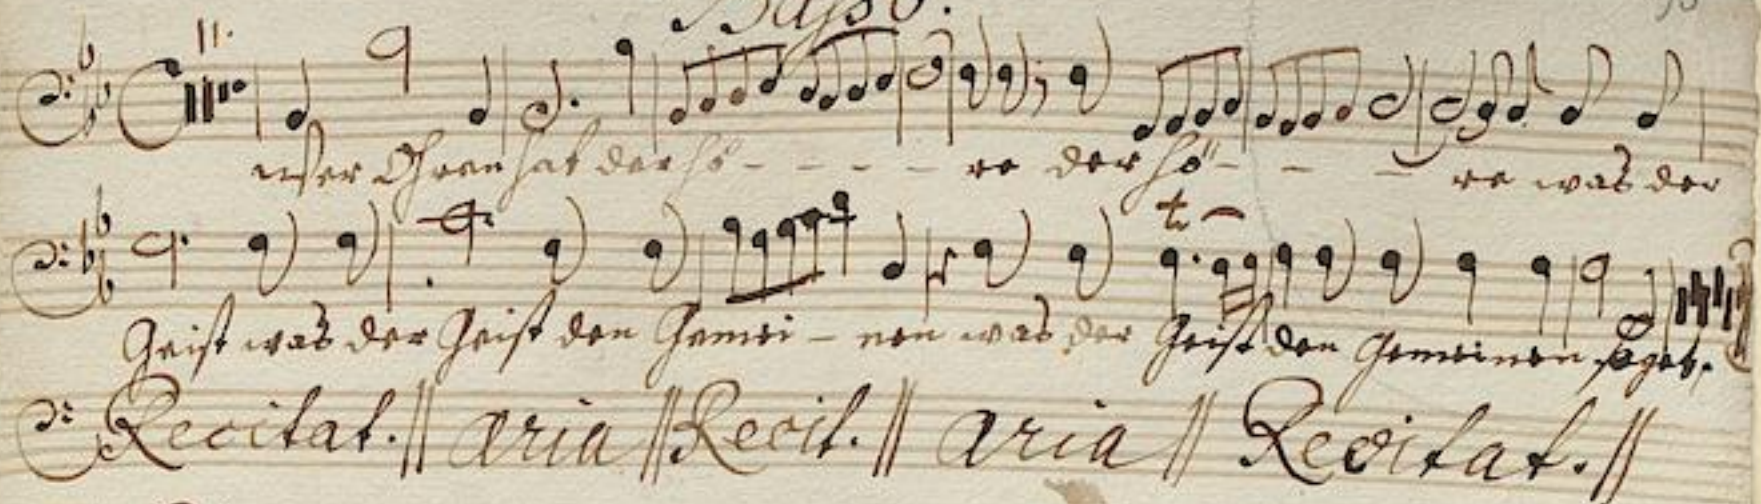 Basso.
11.
unser Ohren hat der hö - - - - - re der hö - - - re was der
t
Geist was der Geist den Gemei - nen was der Geist den Gemeinen saget.
Recitat. || aria || Recit. || aria || Recitat. ||